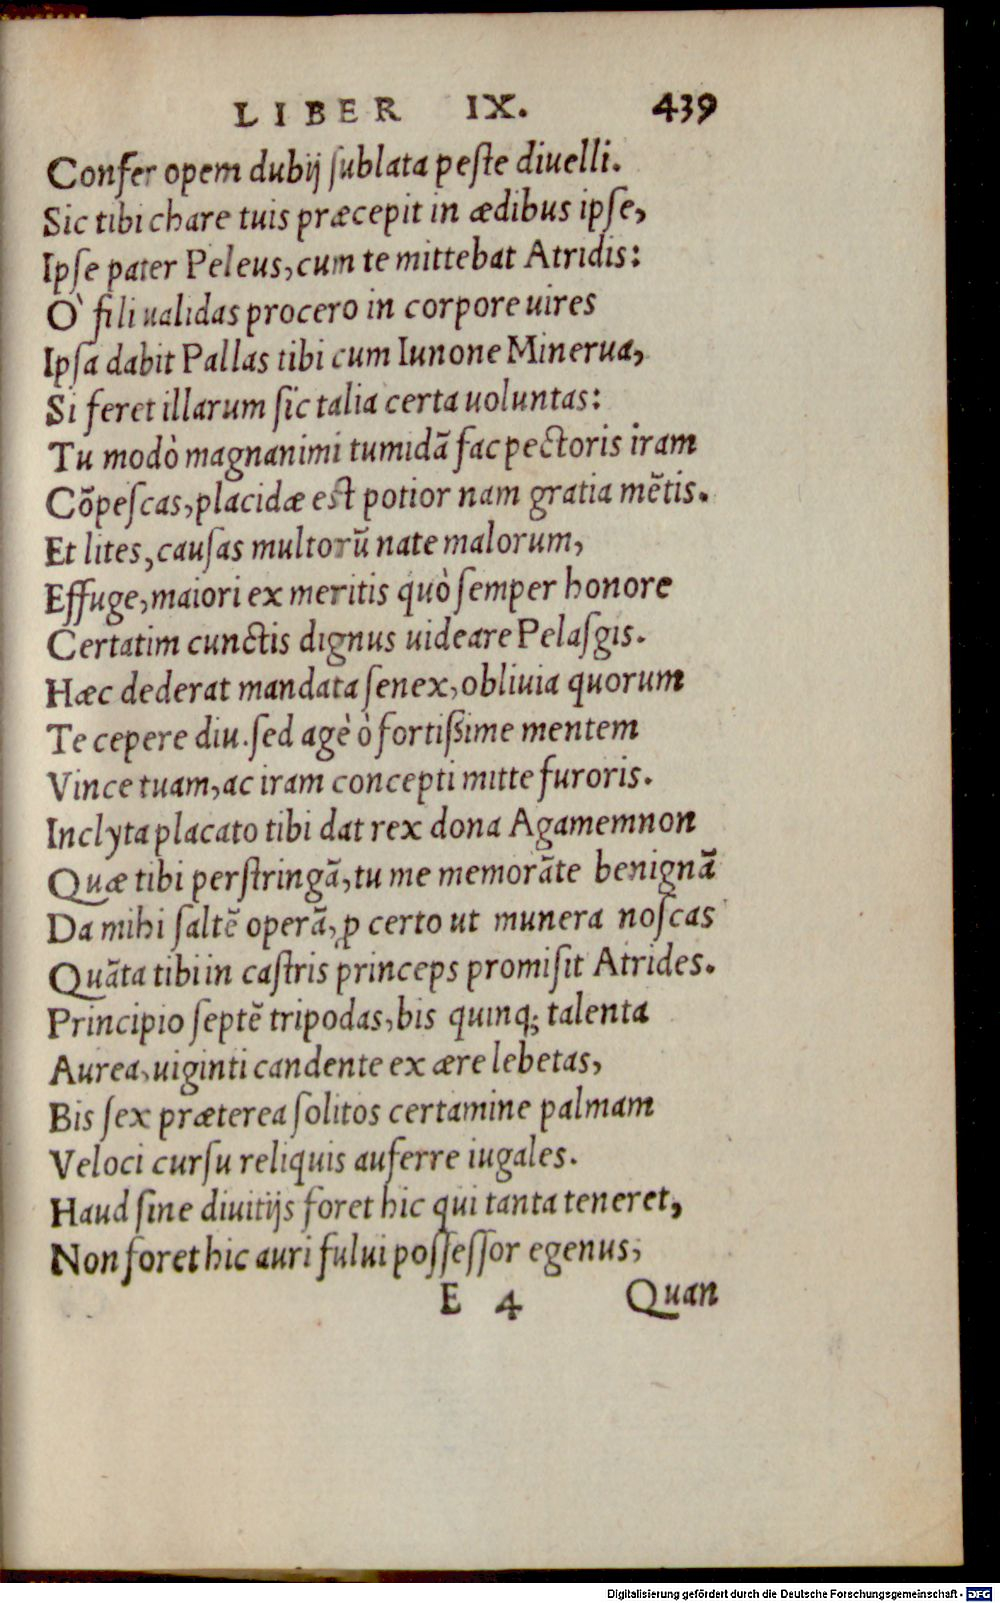 LIBER IX. 439
Confer opem dubij ſublata peſte diuelli.
Sic tibi chare tuis præcepit in ædibus ipſe,
Ipſe pater Peleus, cum te mittebat Atridis:
Ò fili ualidas procero in corpore uires
Ipſa dabit Pallas tibi cum Iunone Minerua,
Si feret illarum ſic talia certa uoluntas:
Tu modò magnanimi tumidã fac pectoris iram
Cõpeſcas, placidæ eſt potior nam gratia mẽtis.
Et lites, cauſas multorũ nate malorum,
Effuge, maiori ex meritis quò ſemper honore
Certatim cunctis dignus uideare Pelaſgis.
Hæc dederat mandata ſenex, obliuia quorum
Te cepere diu. ſed agè ò fortißime mentem
Vince tuam, ac iram concepti mitte furoris.
Inclyta placato tibi dat rex dona Agamemnon
Quæ tibi perſtringã, tu me memorãte benignã
Da mihi ſaltẽ operã, ꝓ certo ut munera noſcas
Quãta tibi in caſtris princeps promiſit Atrides.
Principio ſeptẽ tripodas, bis quinq; talenta
Aurea, uiginti candente ex ære lebetas,
Bis ſex præterea ſolitos certamine palmam
Veloci curſu reliquis auferre iugales.
Haud ſine diuitijs foret hic qui tanta teneret,
Non foret hic auri fului poſſeſſor egenus,
E 4 Quan
Digitalisierung gefördert durch die Deutsche Forschungsgemeinschaft - DFG